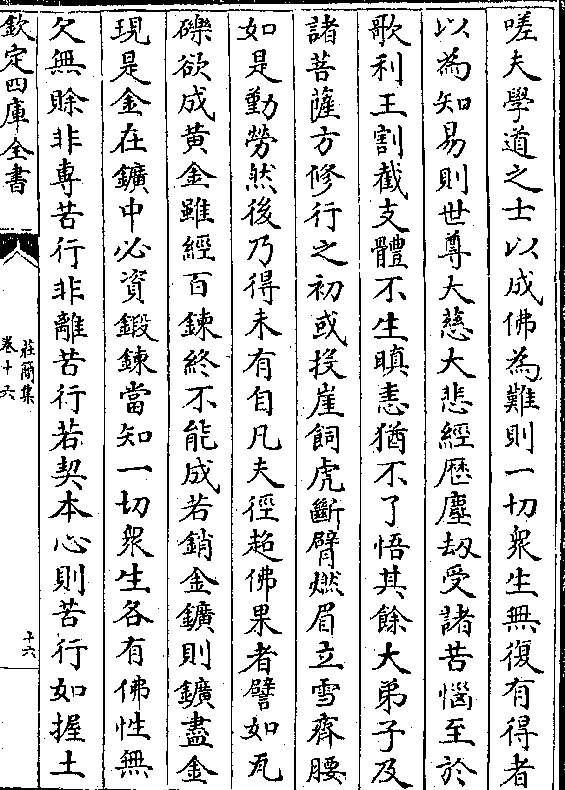 嗟夫學道之士以成佛為難則一切衆生無復有得者
以為知易則世尊大慈大悲經歴塵劫受諸苦惱至於
歌利王割截支體不生瞋恚猶不了悟其餘大弟子及
諸菩薩方修行之初或投崖飼虎斷臂燃眉立雪齊腰
如是勤勞然後乃得未有自凡夫徑超佛果者譬如瓦
礫欲成黄金雖經百鍊終不能成若銷金鑛則鑛盡金
現是金在鑛中必資鍛鍊當知一切衆生各有佛性無
欠無賒非専苦行非離苦行若契本心則苦行如握土
欽定四庫全書
莊簡集
卷十六
十六